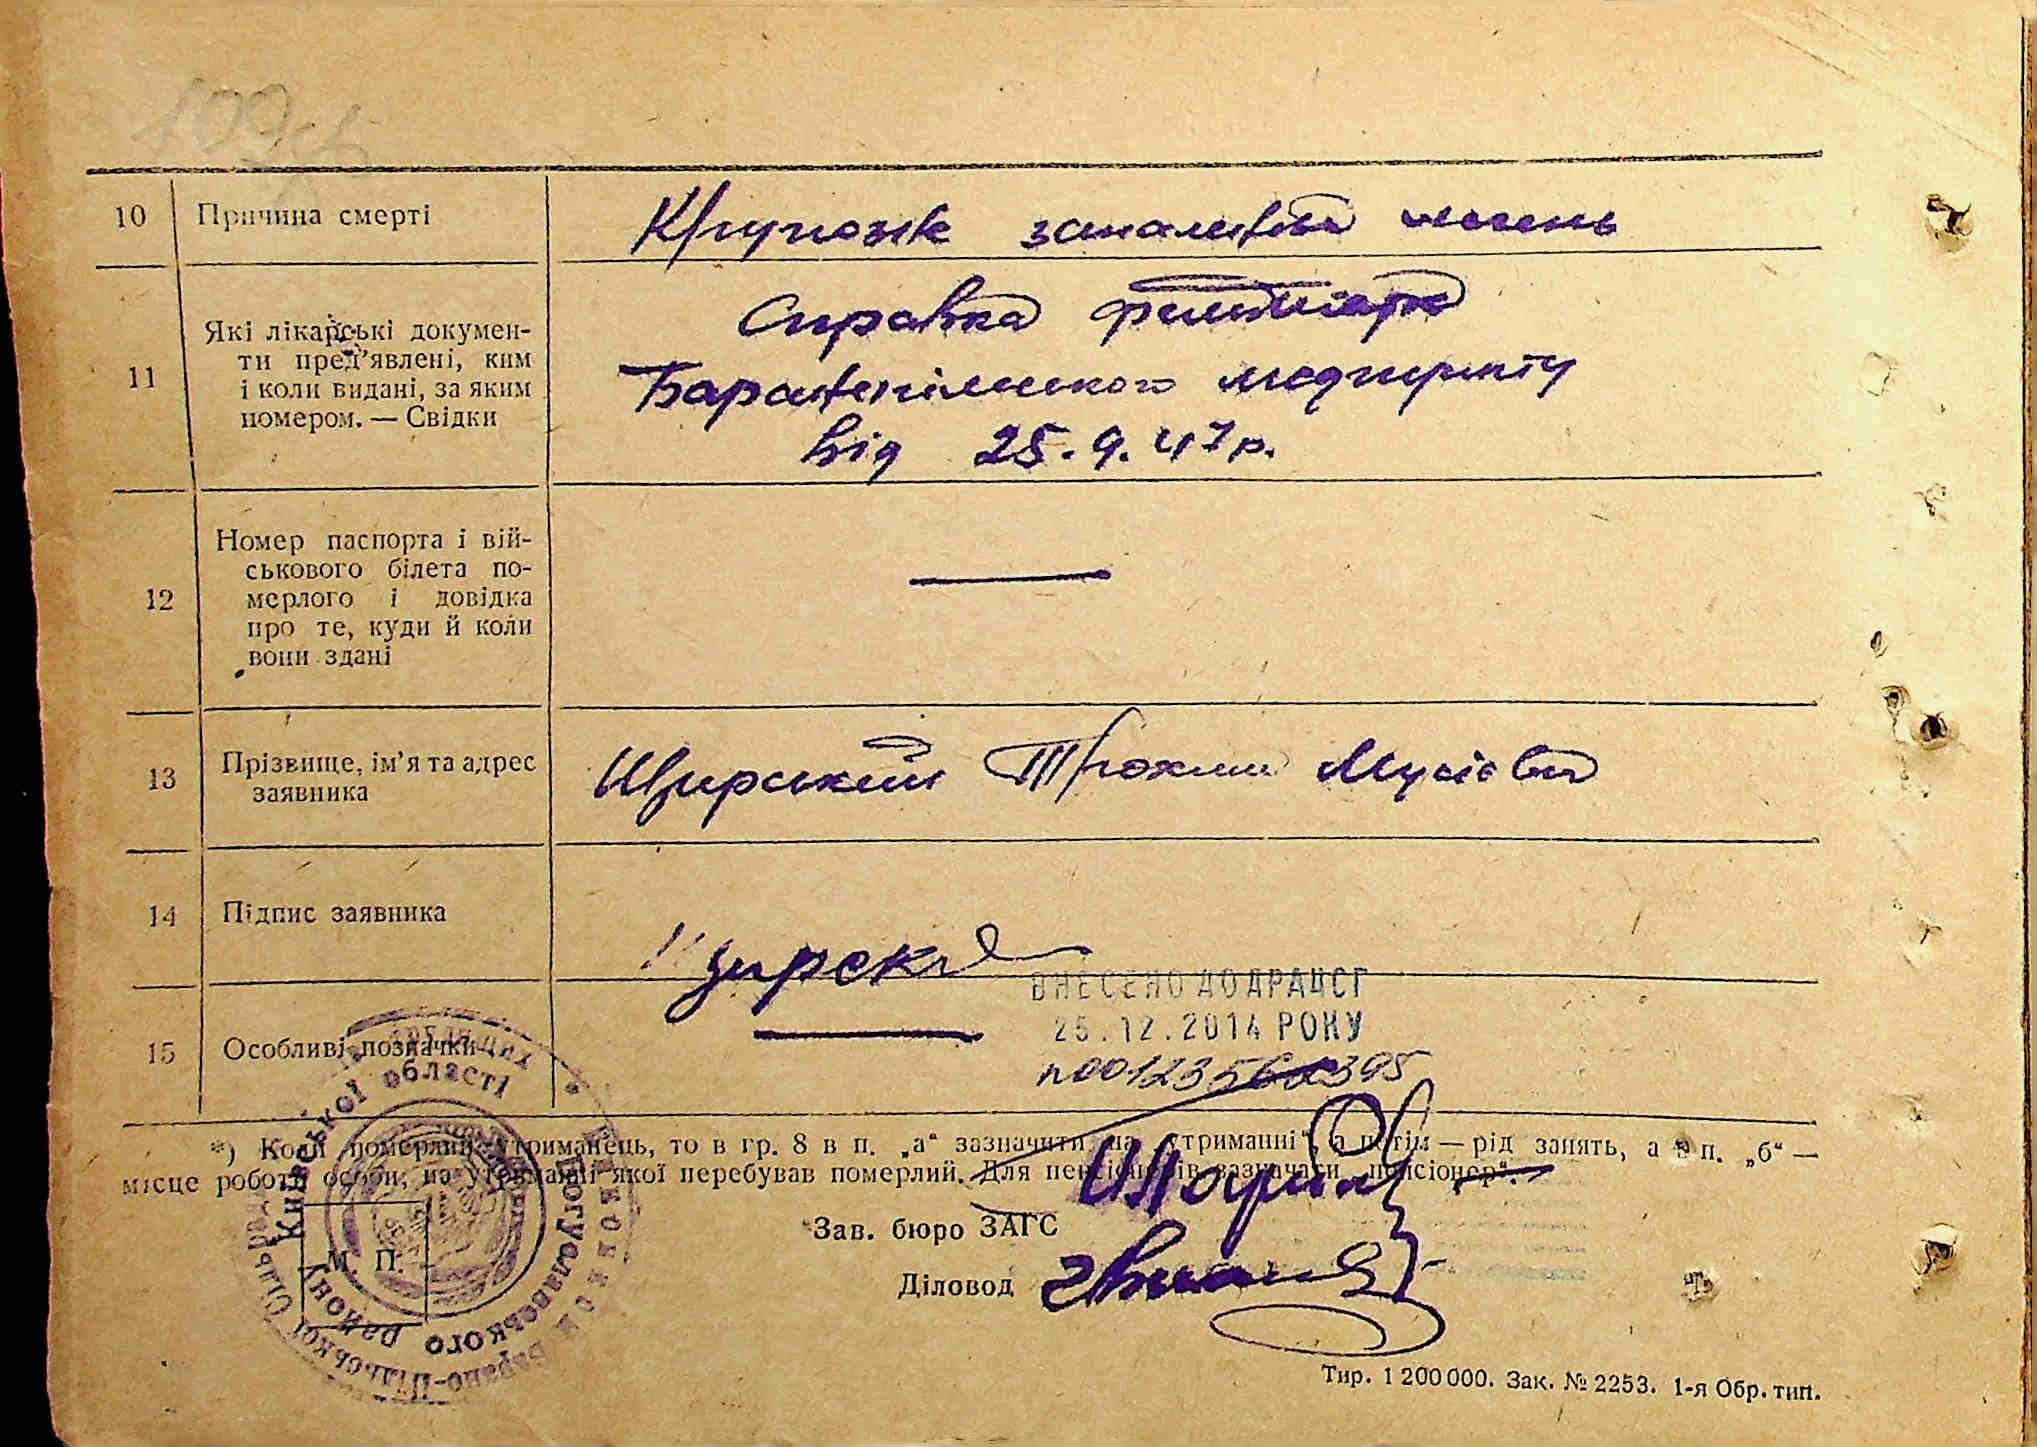 10 Причина смерті Крупозне запалення легень
11 Які лікарські докумен-
ти пред'явлені, ким
і коли видані, за яким
номером. — Свідки
Справка фельдшера
Баранепільського медпункту
від 25.9.47р.
12 Номер паспорта і вій-
ськового білета по-
мерлого і довідка
про те, куди й коли
вони здані
13 Прізвище, ім'я та адрес
заявника
Щирський Трохим Мусієвич
14 Підпис заявника
15 Особливі позначки
ВНЕСЕНО ДО ДРАЦСГ
25.12.2014 РОКУ
*) Коли померлий утриманець, то в гр. 8 в п. „а“ зазначити „на утриманні“, а потім — рід занять, а в п. „б“ —
місце роботи особи, на утриманні якої перебував померлий. Для пенсіонерів зазначати „пенсіонер“.
Зав. бюро ЗАГС
Діловод
М. П.
Київської області
Богуславського району
Тир. 1 200 000. Зак. № 2253. 1-я Обр. тип.